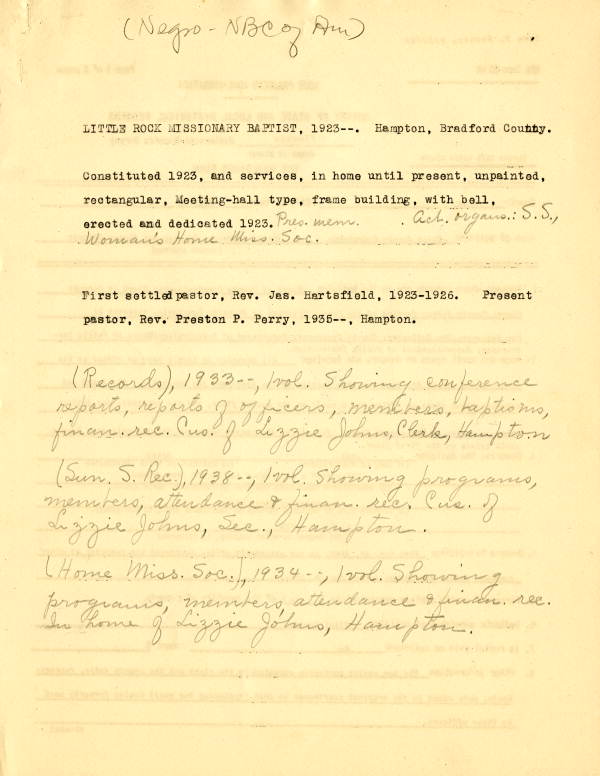 (Negro - NBC of Am)
LITTLE ROCK MISSIONARY BAPTIST, 1923--. Hampton, Bradford County.
Constituted 1923, and services, in home until present, unpainted,
rectangular, Meeting-hall type, frame building, with bell,
erected and dedicated 1923. Pres. mem. . Act. organs.: S.S.,
Woman's Home Miss. Soc.
First settled pastor, Rev. Jas. Hartsfield, 1923-1926. Present
pastor, Rev. Preston P. Perry, 1935--, Hampton.
(Records), 1933--, 1 vol. Showing conference
reports, reports of officers, members, baptisms,
finan. rec. Cus. of Lizzie Johns, Clerk, Hampton
(Sun. S. Rec.), 1938--, 1 vol. Showing programs,
members, attendance & finan. rec. Cus. of
Lizzie Johns, Sec., Hampton.
(Home Miss. Soc.), 1934--, 1 vol. Showing
programs, members, attendance & finan. rec.
In home of Lizzie Johns, Hampton.